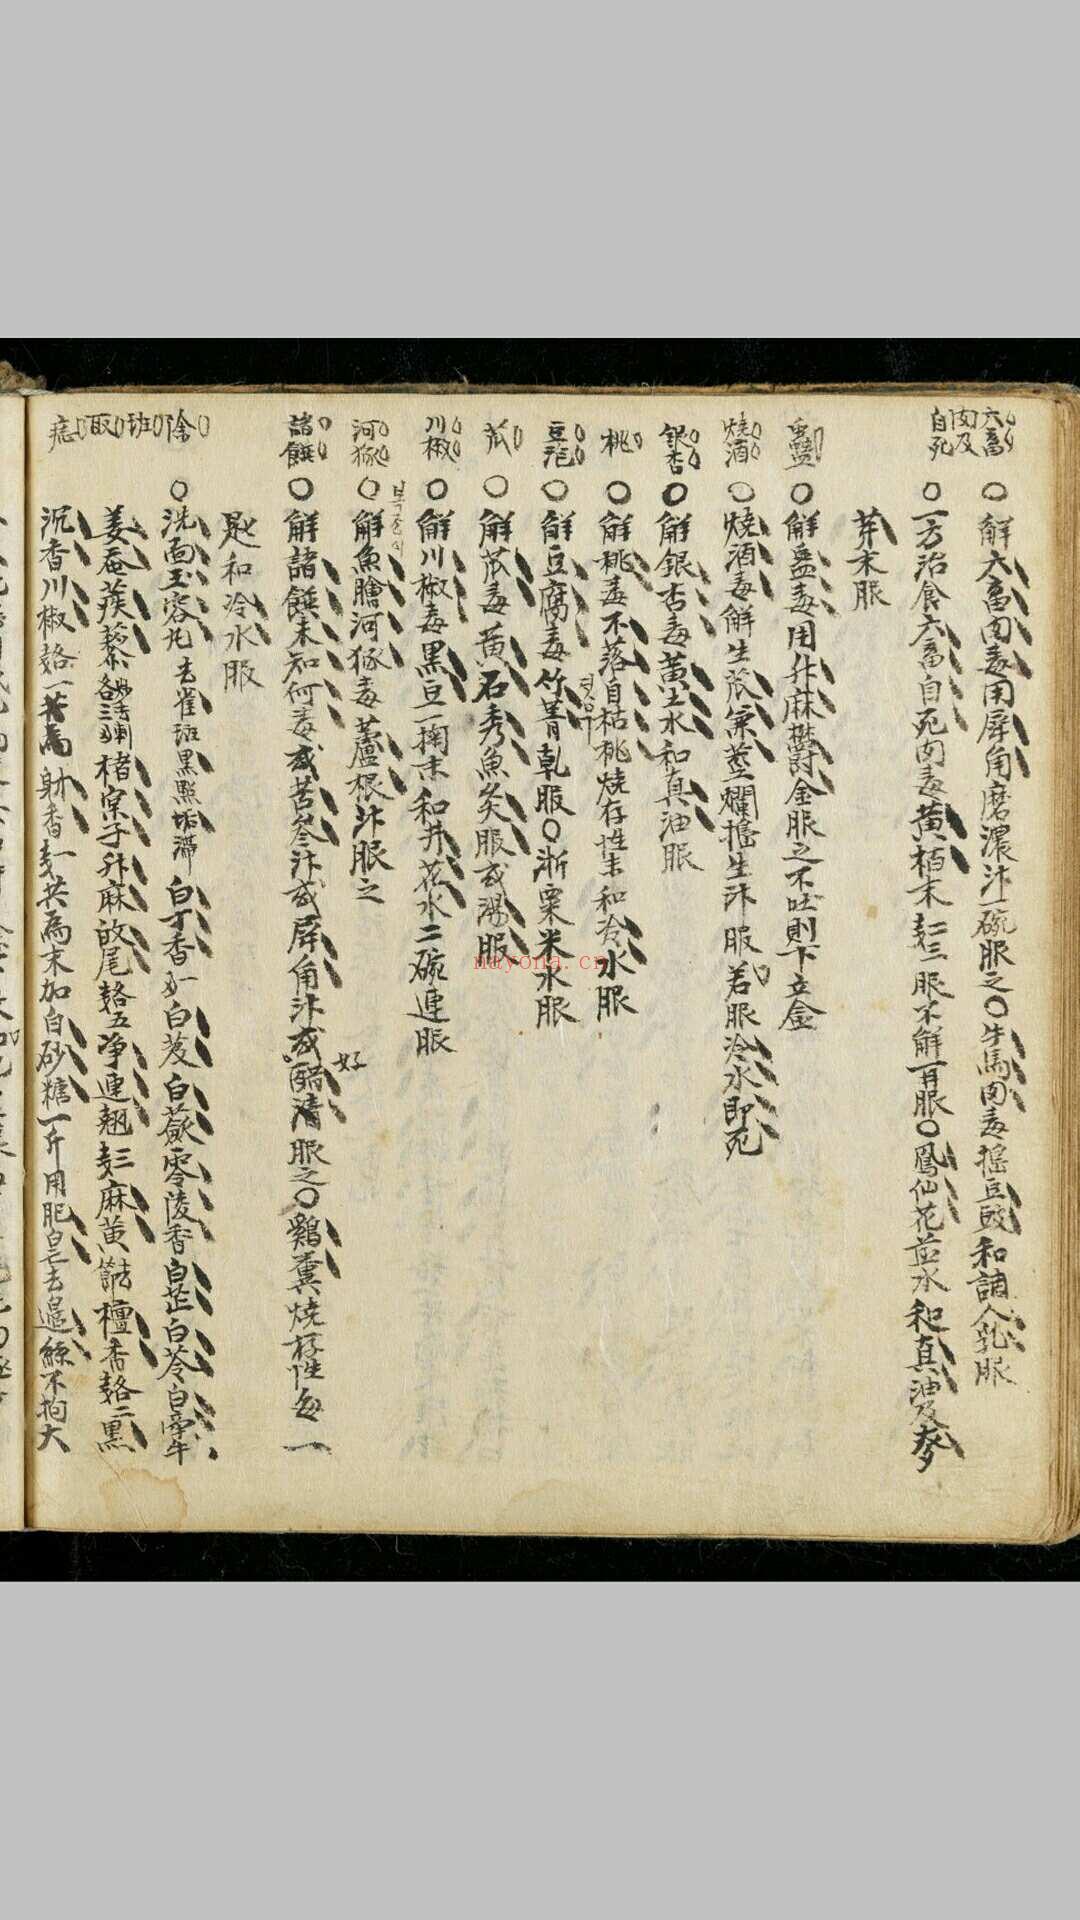 六畜
肉及
自死
○解六畜肉毒用犀角磨濃汁一碗服之○牛馬肉毒搗豆豉和調人乳服
○一方治食六畜自死肉毒黃栢末二三服不解再服○鳳仙花並水和真油及麥
芽末服
蠱
○解蠱毒用升麻欝金服之不吐則下立金
燒酒
○燒酒毒解生茋菓莖爛搗生汁服若服冷水即死
銀杏
○解銀杏毒黃土水和真油服
桃
○解桃毒不落自枯桃燒存性末和冷水服
豆泡
○解豆腐毒竹茸乾服○淅粟米水服
苽
○解苽毒黃石秀魚炙服或湯服
川椒
○解川椒毒黑豆一掬末和井花水二碗連服
河豚
복쟝이
○解魚膾河豚毒蘆根汁服之
諸饌
○解諸饌未知何毒或苦參汁或犀角汁或好醋清服之○鷄糞燒存性每一
匙和冷水服
除
班
取
痣
○洗面玉容丸去雀斑黑點垢滯白丁香白芨白蘞零陵香白芷白苓白牽牛
姜蚕蒺藜楮實子升麻皮尾五淨連翹麻黃檀香二黑
沉香川椒一共為末加白砂糖一斤用肥皂去邊絲不拘大
nayona.cn